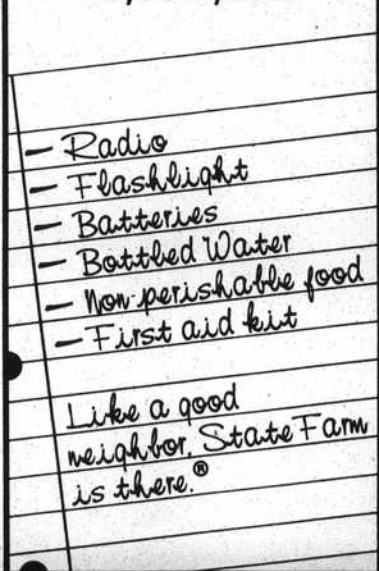 — Radio
— Flashlight
— Batteries
— Bottled Water
— Non-perishable food
— First aid kit
Like a good
neighbor, State Farm
is there.®